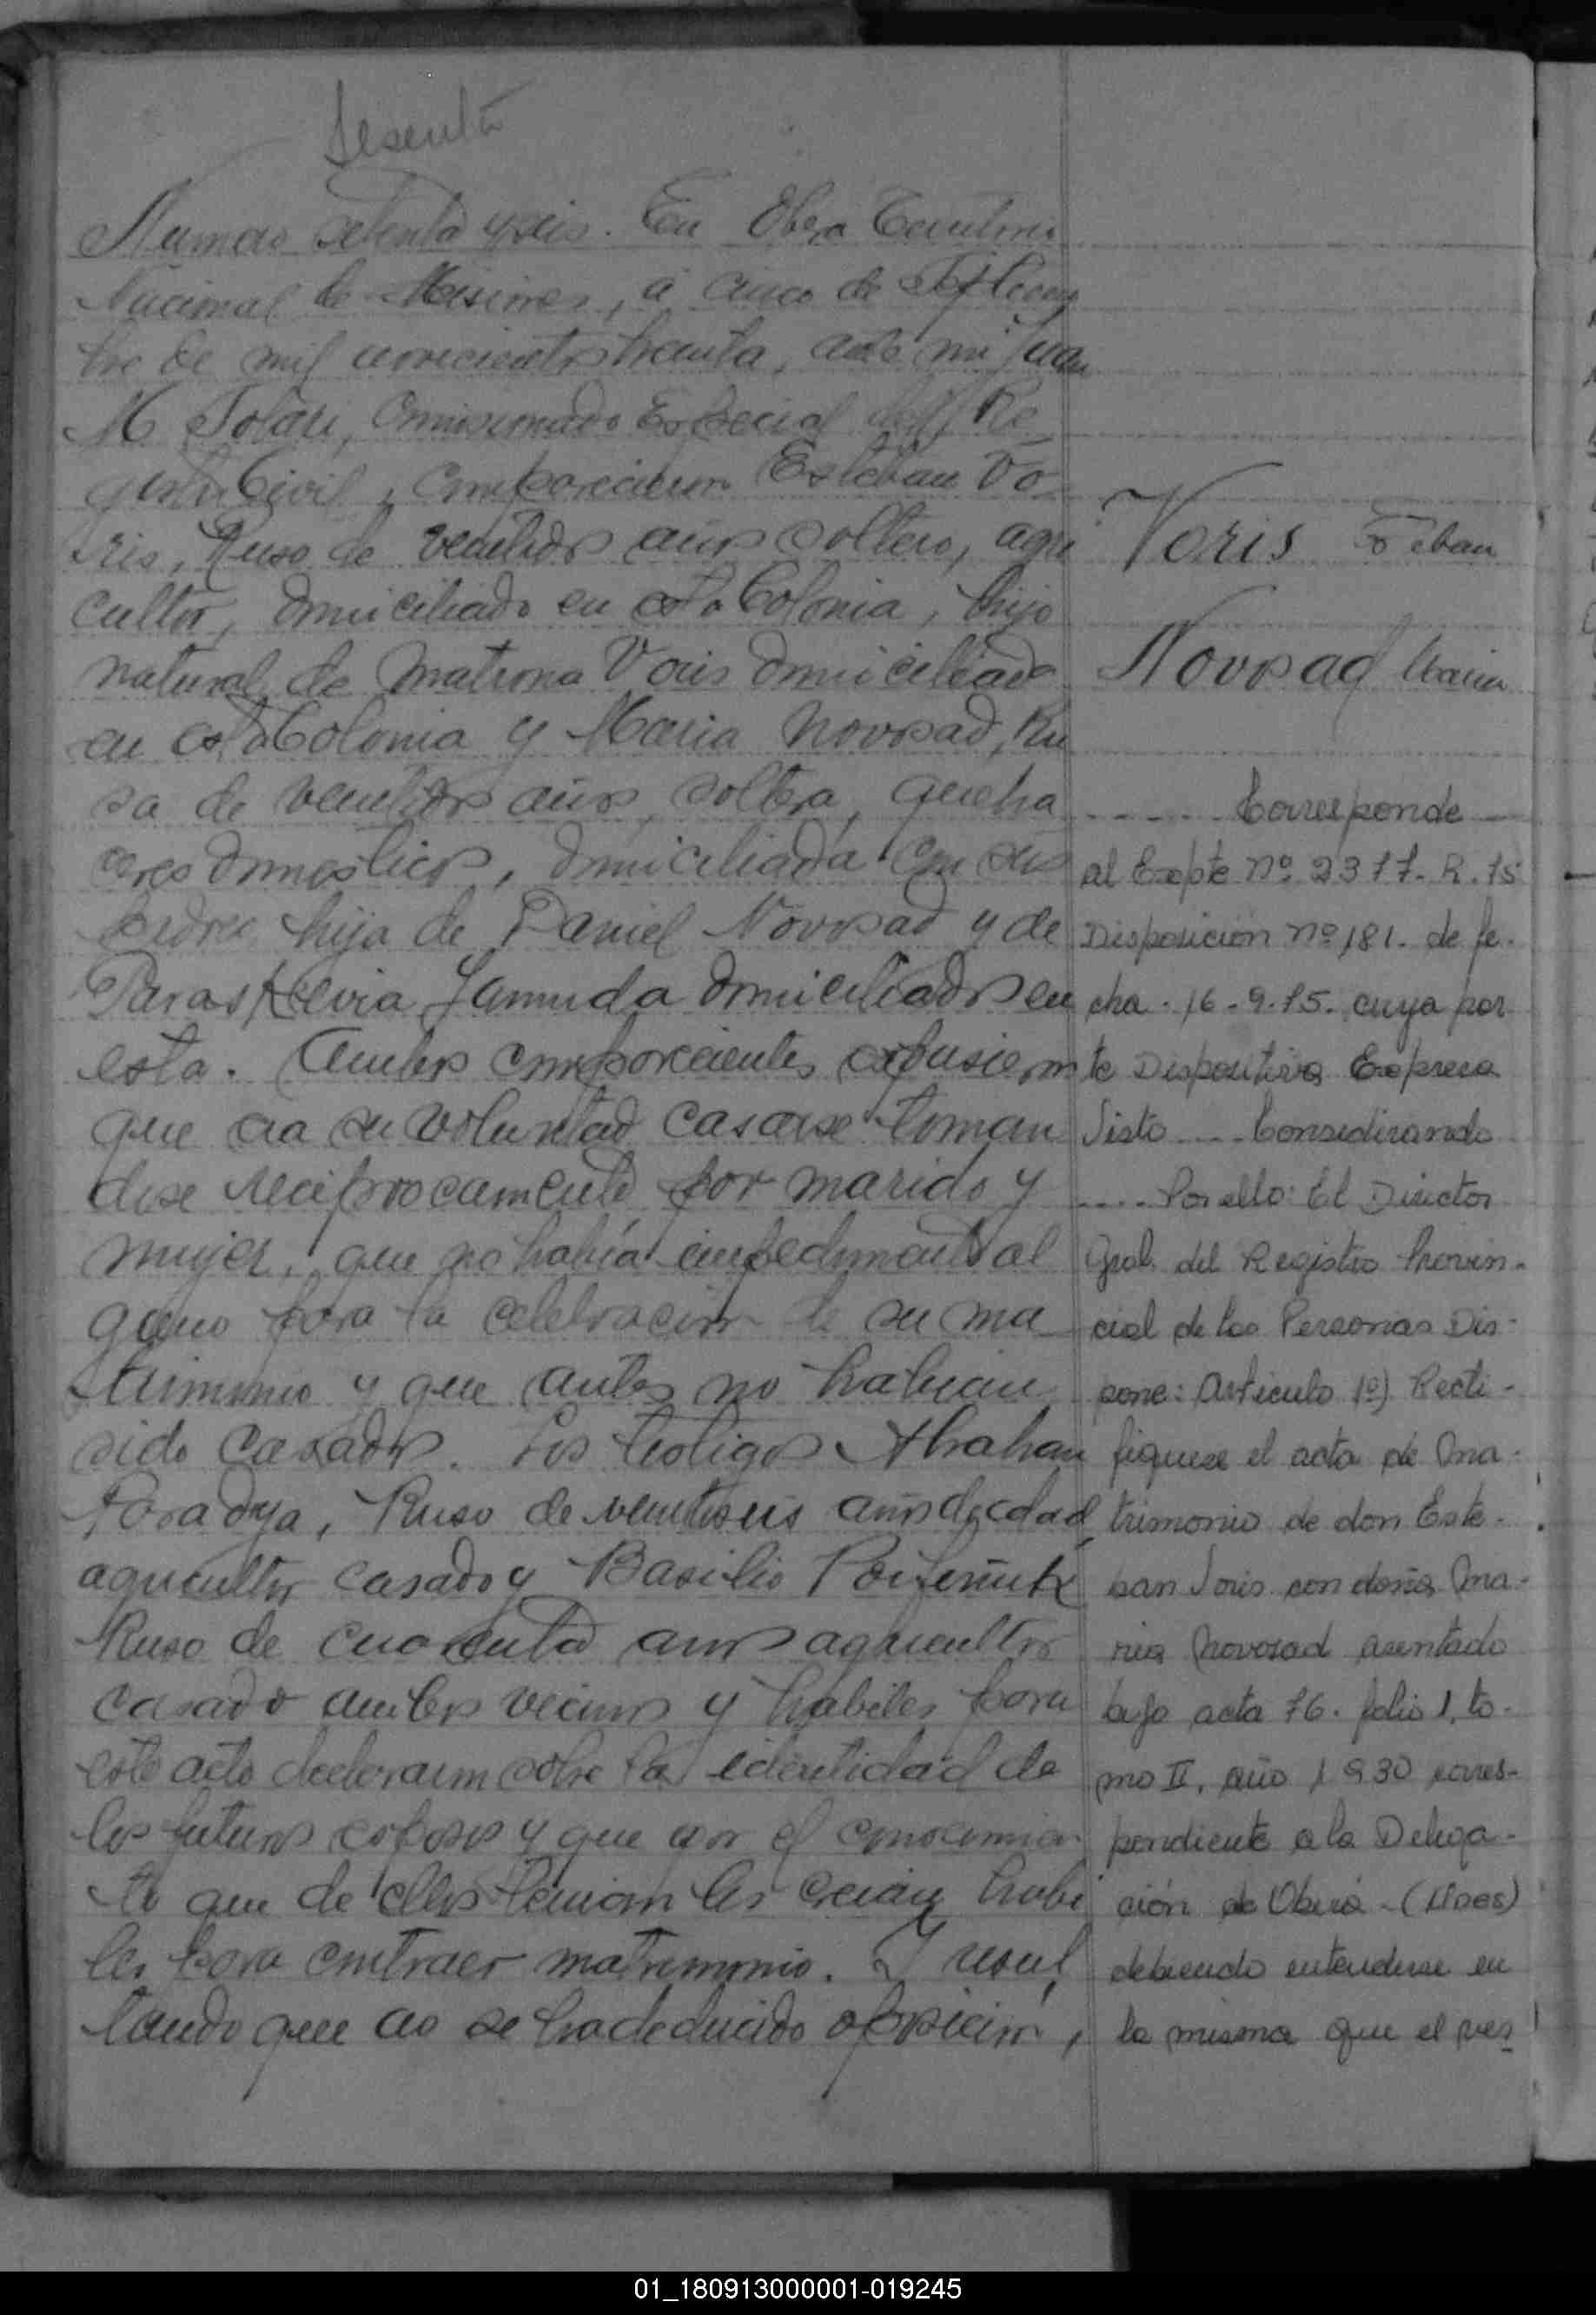 Sesenta
Numero setenta y seis. En Obera Territorio
Nacional de Misiones, á cinco de Septiem
bre de mil novecientos treinta, ante mi Juan
M Solari, Comisionado Especial del Re
gistro Civil, comparecieron Esteban Vo
ris, Ruso de veintidos años soltero, agri
cultor, domiciliado en esta Colonia, hijo
natural de Matrona Voris domiciliada
en esta Colonia y Maria Novosad, Ru
sa de veintidos años, soltera, queha
ceres domesticos, domiciliada con sus
padres hija de Daniel Novosad y de
domiciliados en
esta. Ambos comparecientes expusieron
que era su voluntad casarse toman
dose reciprocamente por marido y
mujer, que no habia impedimento al
guno para la celebracion de su ma
trimonio y que antes no habian
sido casados. Los testigos Abraham
Ruso de veintiseis años de edad
agricultor casado y Basilio
Ruso de cuarenta años agricultor
casado ambos vecinos y habiles para
este acto declararon sobre la identidad de
los futuros esposos y que por el conocimien
to que de ellos tenian los creian habi
les para contraer matrimonio. Y resul
tando que no se ha deducido oposicion,
Voris Esteban
Novosad Maria
........ Corresponde
al Expte Nº 2377. R. 75
Disposición nº 181. de fe-
cha. 16-9-75. cuya par
te Dispositiva Expresa
Visto .... Considerando
.... Por ello: El Director
Gral. del Registro Provin-
cial de las Personas Dis-
pone: Artículo 1º) Recti-
fiquese el acta de Ma-
trimonio de don Este-
ban Voris con doña Ma-
ria Novosad asentado
bajo acta 76. folio 1, to-
mo II, año 1930 corres-
pondiente a la Delega-
ción de Oberá - (Mnes)
debiendo entenderse en
la misma que el
01_180913000001-019245